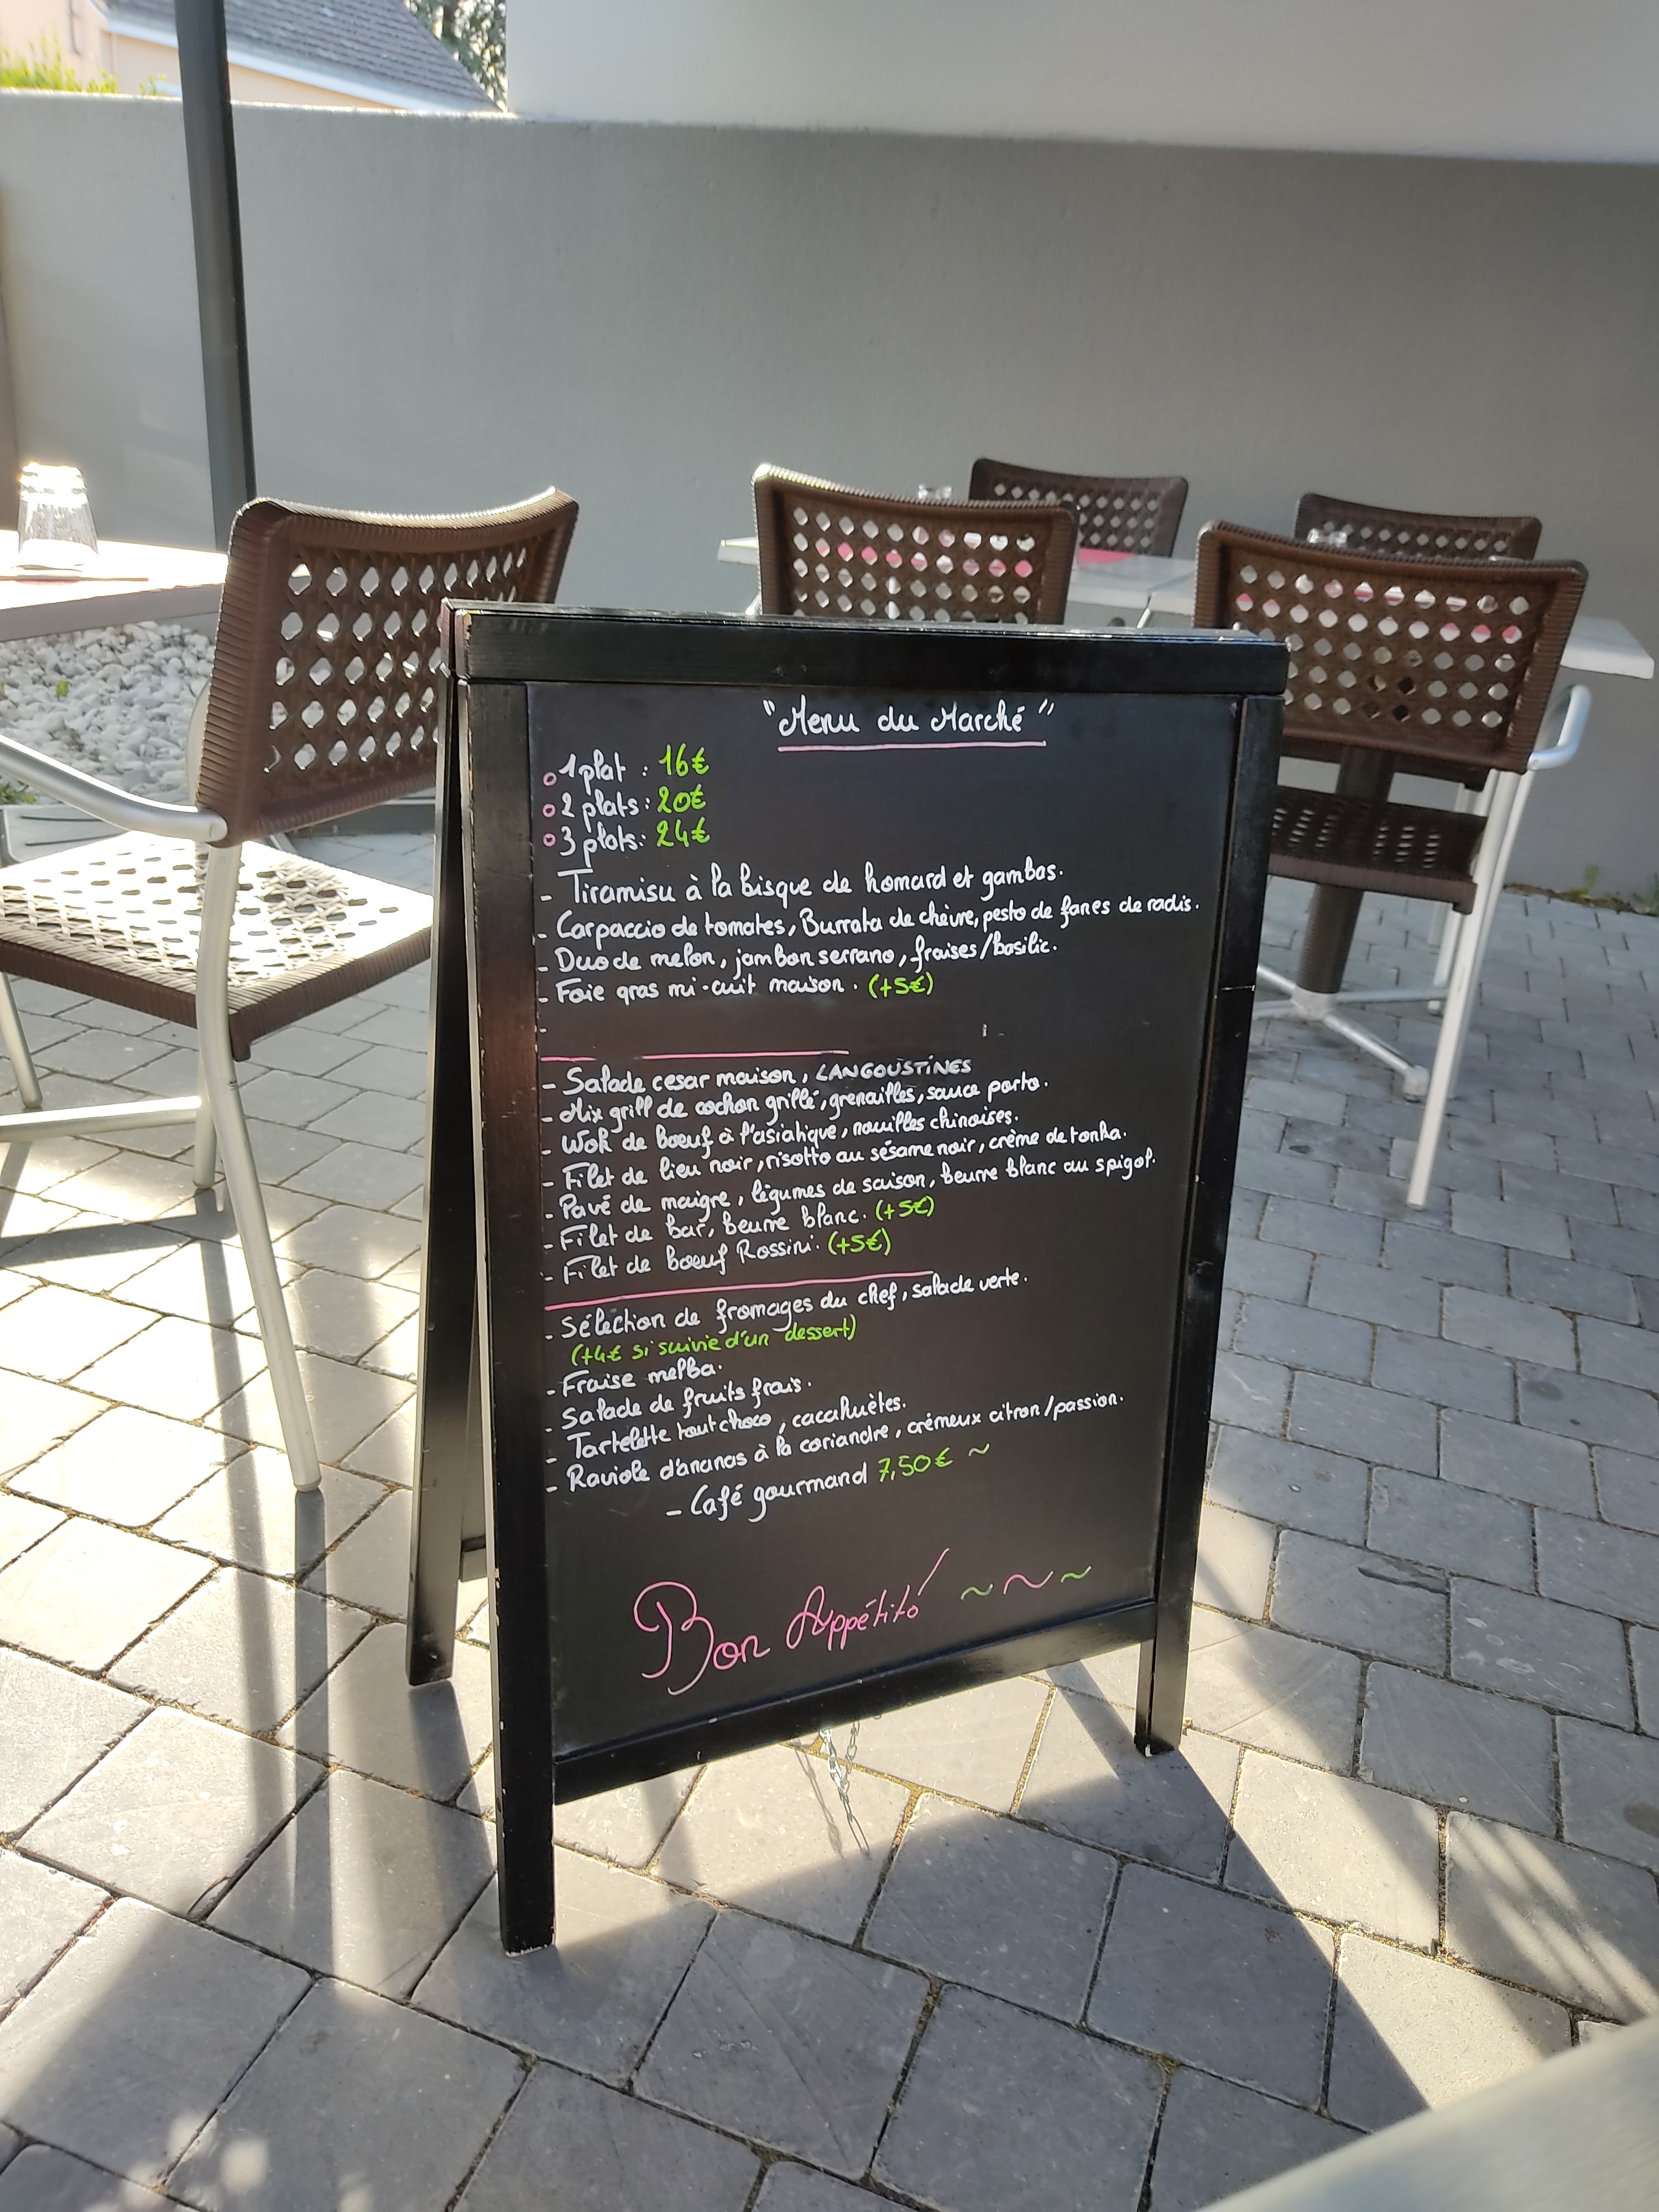 "Menu du Marché"
1 plat : 16€
2 plats : 20€
3 plats : 24€
- Tiramisu à la bisque de homard et gambas.
- Carpaccio de tomates, Burrata de chèvre, pesto de fanes de radis.
- Duo de melon, jambon serrano, fraises/basilic.
- Foie gras mi-cuit maison. (+5€)
-
- Salade cesar maison, LANGOUSTINES
- Mix grill de cochon grillé, grenailles, sauce porto.
- Wok de boeuf à l'asiatique, nouilles chinoises.
- Filet de lieu noir, risotto au sésame noir, crème de tonka.
- Pavé de maigre, légumes de saison, beurre blanc au spigol.
- Filet de bar, beurre blanc. (+5€)
- Filet de boeuf Rossini. (+5€)
- Sélection de fromages du chef, salade verte.
(+4€ si suivie d'un dessert)
- Fraise melba.
- Salade de fruits frais.
- Tartelette tout choco, cacahuètes.
- Raviole d'ananas à la coriandre, crémeux citron/passion.
- Café gourmand 7,50€ ~
Bon Appétito! ~ ~ ~